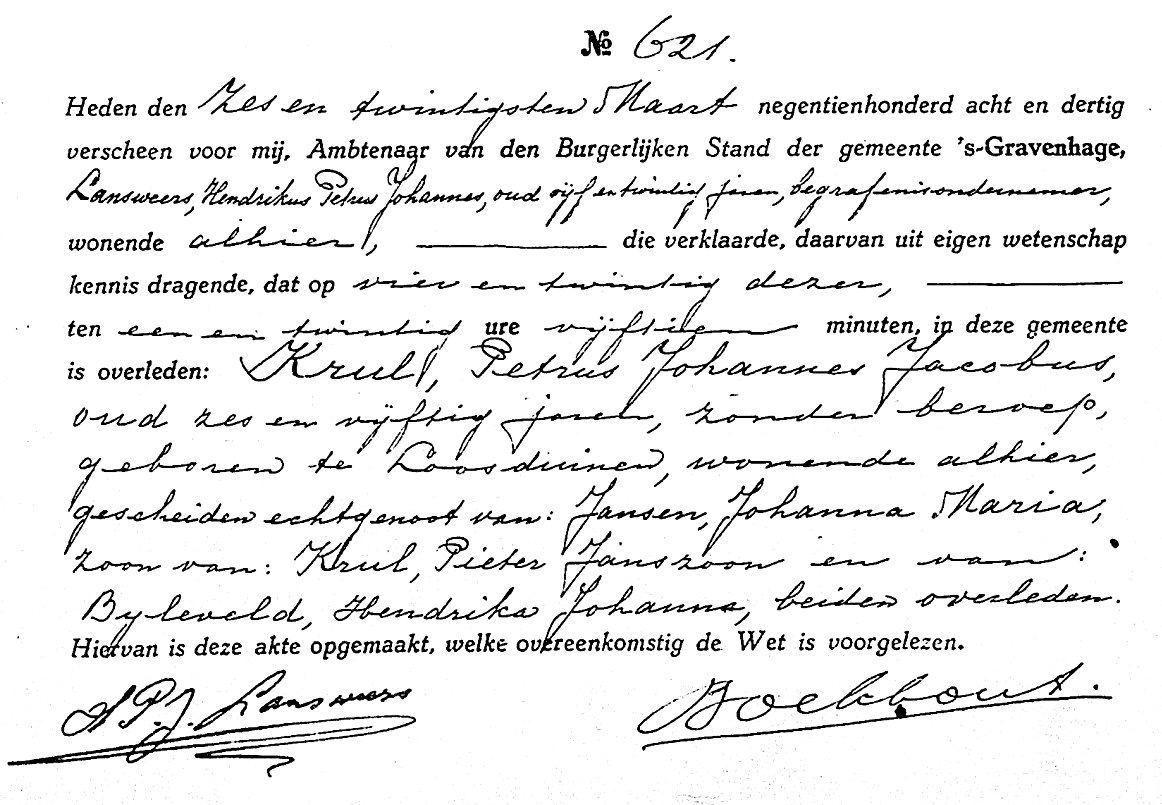 № 621.
Heden den zes en twintigsten Maart negentienhonderd acht en dertig
verscheen voor mij, Ambtenaar van den Burgerlijken Stand der gemeente 's-Gravenhage,
Lansweers, Hendrikus Petrus Johannes, oud vijf en twintig jaren, begrafenisondernemer,
wonende alhier, die verklaarde, daarvan uit eigen wetenschap
kennis dragende, dat op vier en twintig dezer,
ten een en twintig ure vijftien minuten, in deze gemeente
is overleden: Krul, Petrus Johannes Jacobus,
oud zes en vijftig jaren, zonder beroep,
geboren te Loosduinen, wonende alhier,
gescheiden echtgenoot van: Jansen, Johanna Maria,
zoon van: Krul, Pieter Janszoon en van:
Byleveld, Hendrika Johanna, beiden overleden.
Hiervan is deze akte opgemaakt, welke overeenkomstig de Wet is voorgelezen.
H.P.J. Lansweers Boekhout.